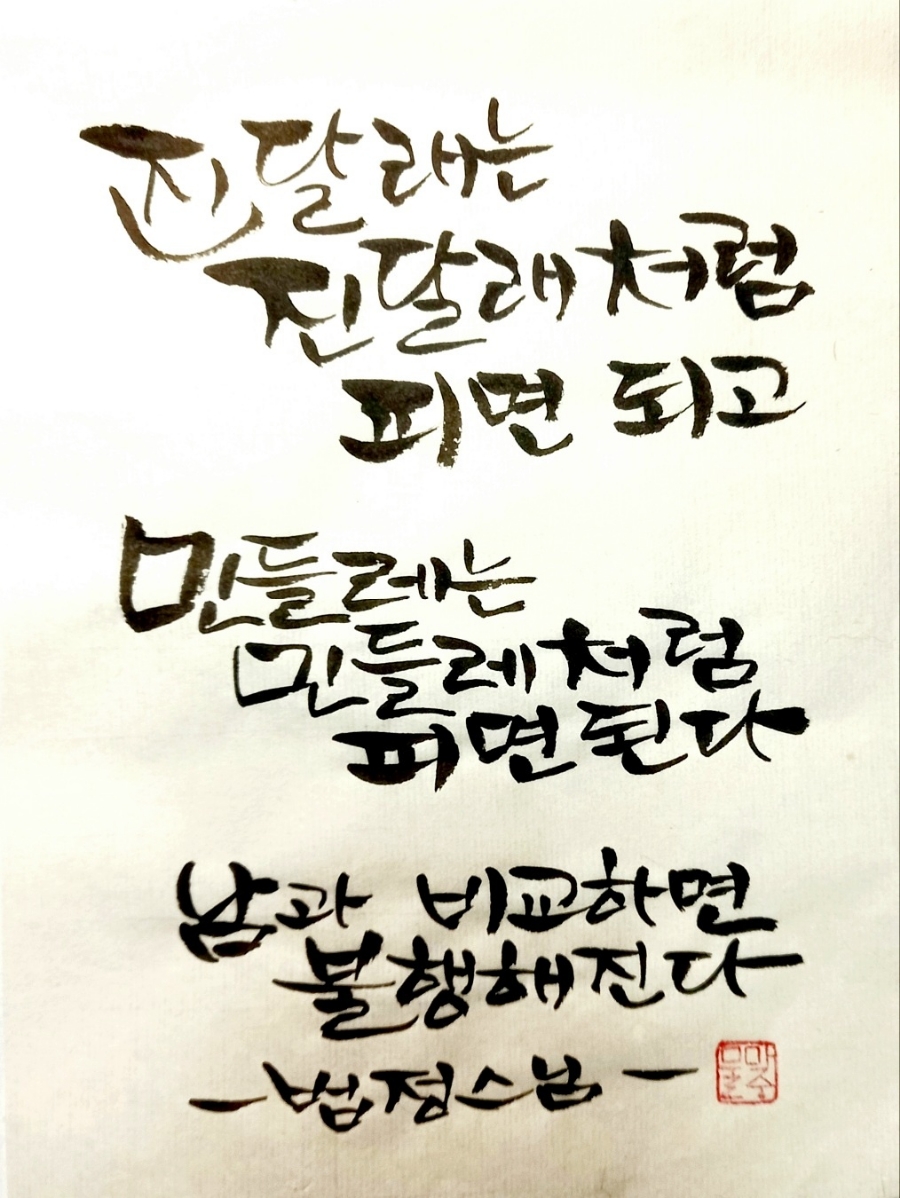 진달래는
진달래처럼
피면 되고
민들레는
민들레처럼
피면 된다
남과 비교하면
불행해진다
-법정스님-